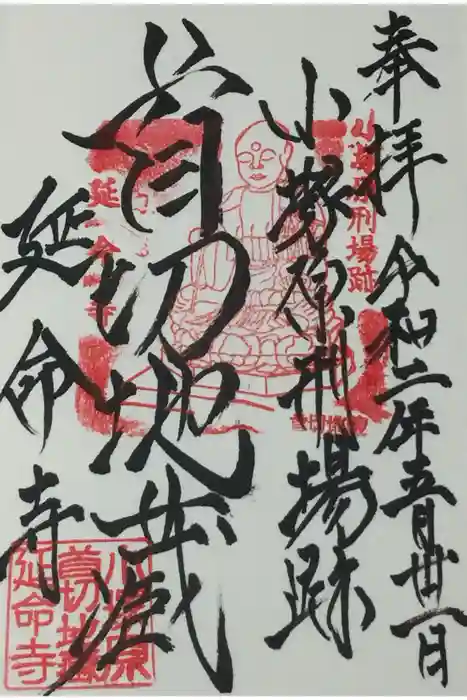 奉拝 令和二年五月廿一日
小塚原刑場跡
首切地蔵
延命寺
小塚原刑場跡
延命寺
首切地蔵
小塚原
首切地蔵
延命寺